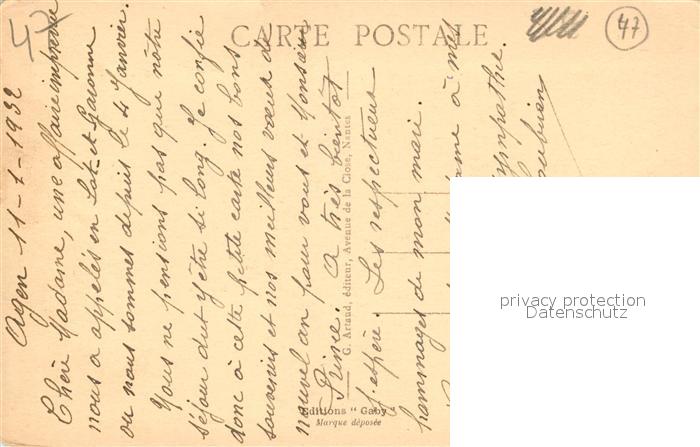 47
CARTE POSTALE
47
Agen 11-1-1932
Chère Madame, une affaire imprévue
nous a appelés en Lot-et-Garonne
où nous sommes depuis le 4 Janvier.
Nous ne pensions pas que nôtre
séjour dut y être si long. Je confie
donc à cette petite carte nos bons
souvenirs et nos meilleurs vœux de
nouvel an pour vous et Monsieur
Prime. A très bientôt
j'espère. Les respectueux
hommages de mon mari.
à mes
sympathie.
G. Artaud, éditeur, Avenue de la Close, Nantes
Editions "Gaby"
Marque déposée
privacy protection
Datenschutz